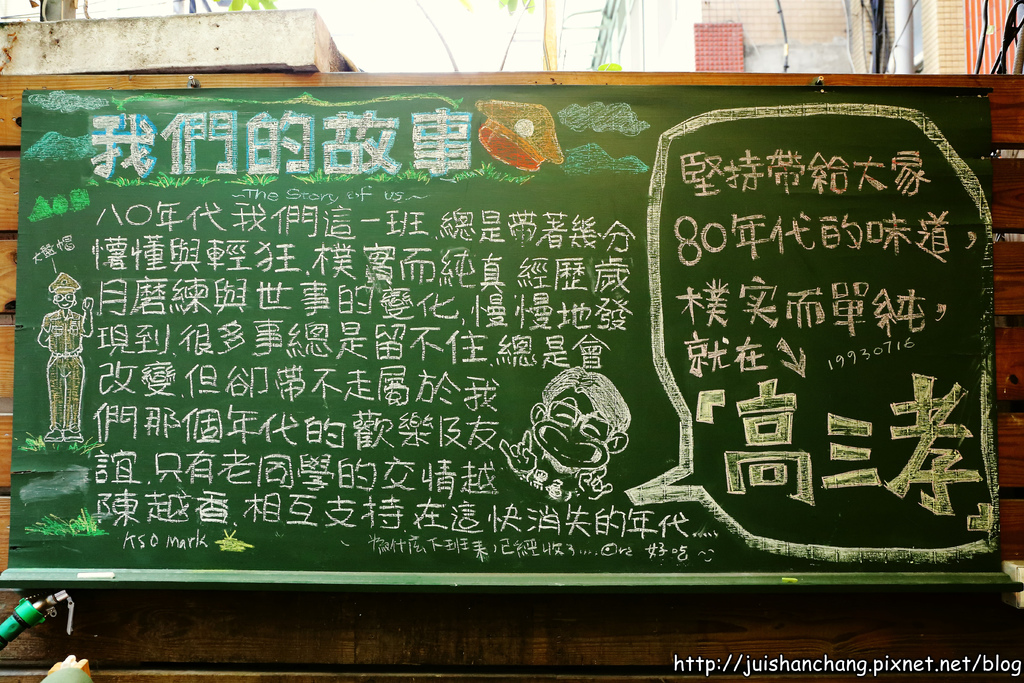 我們的故事
The Story of us~
大盤帽
八〇年代我們這一班、總是帶著幾分
懵懂與輕狂、樸實而純真 經歷歲
月磨練與世事的變化,慢慢地發
現到,很多事總是留不住,總是會
改變,但卻帶不走屬於我
們那個年代的歡樂及友
誼,只有老同學的交情越
陳越香 相互支持在這快消失的年代.....
KSO Mark
為什麼下班來,已經收了....
好吃
堅持帶給大家
80年代的味道,
樸実而單純,
就在↘
19930716
『高三孝』
http://juishanchang.pixnet.net/blog